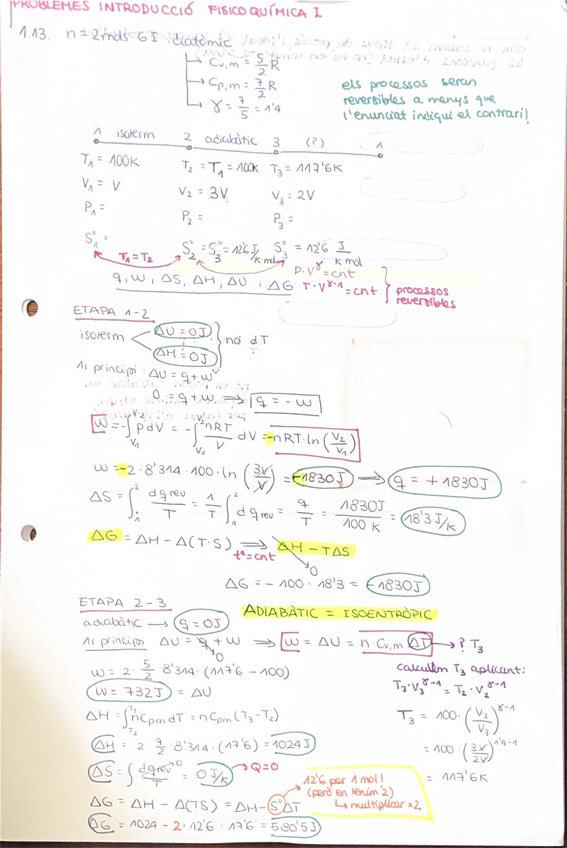 PROBLEMES INTRODUCCIÓ FISICOQUÍMICA I
1.13. n = 2mols GI diatòmic
Cv,m = 5/2 R
Cp,m = 7/2 R
γ = 7/5 = 1'4
els processos seran
reversibles a menys que
l'enunciat indiqui el contrari!
1 isoterm 2 adiabàtic 3 (?) 1
T1 = 100K T2 = T1 = 100K T3 = 117'6K
V1 = V V2 = 3V V3 = 2V
P1 = P2 = P3 =
S°1 = S°2 = S°3 = 12'6 J/K mol S°3 = 12'6 J/K mol
T1 = T2
q, w, ΔS, ΔH, ΔU i ΔG
P·V^γ = cnt
T·V^γ-1 = cnt
processos
reversibles
ETAPA 1-2
isoterm ΔU = 0J
ΔH = 0J
no dT
1r principi: ΔU = q + w
0 = q + w ⟹ q = -w
w = -∫V1V2 PdV = -∫V1V2 nRT/V dV = -nRT·ln(V2/V1)
w = -2·8'314·100·ln(3V/V) = -1830J ⟹ q = +1830J
ΔS = ∫12 dqrev/T = 1/T ∫12 dqrev = q/T = 1830J/100 K = 18'3 J/K
ΔG = ΔH - Δ(T·S) ⟹ ΔH - TΔS
tª = cnt
0
ΔG = -100·18'3 = -1830J
ETAPA 2-3
ADIABÀTIC = ISOENTRÒPIC
adiabàtic → q = 0J
1r principi ΔU = q + w ⟹ w = ΔU = n Cv,m ΔT → ? T3
0
w = 2·5/2·8'314·(117'6 - 100)
w = 732J = ΔU
calculem T3 aplicant:
T3·V3^γ-1 = T2·V2^γ-1
T3 = 100·(V2/V3)^γ-1
= 100·(3V/2V)^1'4-1
= 117'6K
ΔH = ∫T2T3 nCpm dT = nCpm (T3 - T2)
ΔH = 2·7/2·8'314·(17'6) = 1024J
ΔS = ∫dqrev/T = 0J/K → Q=0
0
ΔG = ΔH - Δ(TS) = ΔH - S°ΔT
12'6 per 1 mol!
(però en tenim 2)
↳ multiplicar ×2
ΔG = 1024 - 2·12'6·17'6 = 580'5J